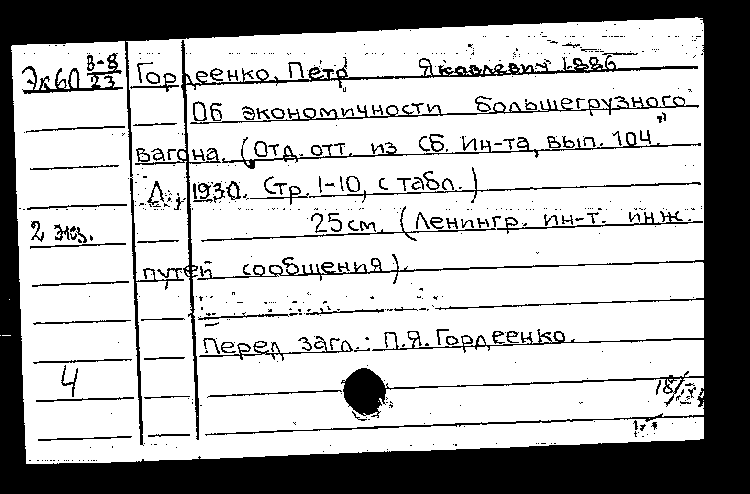 Эк60 В-8/23 Гордеенко, Петр Яковлевич 1886
Об экономичности большегрузного
вагона. (Отд. отт. из Сб. Ин-та, вып. 104."
Л., 1930. Стр. 1-10, с табл.)
2 экз. 25 см. (Ленингр. ин-т. инж.
путей сообщения).
Перед загл.: П.Я. Гордеенко.
4
18/